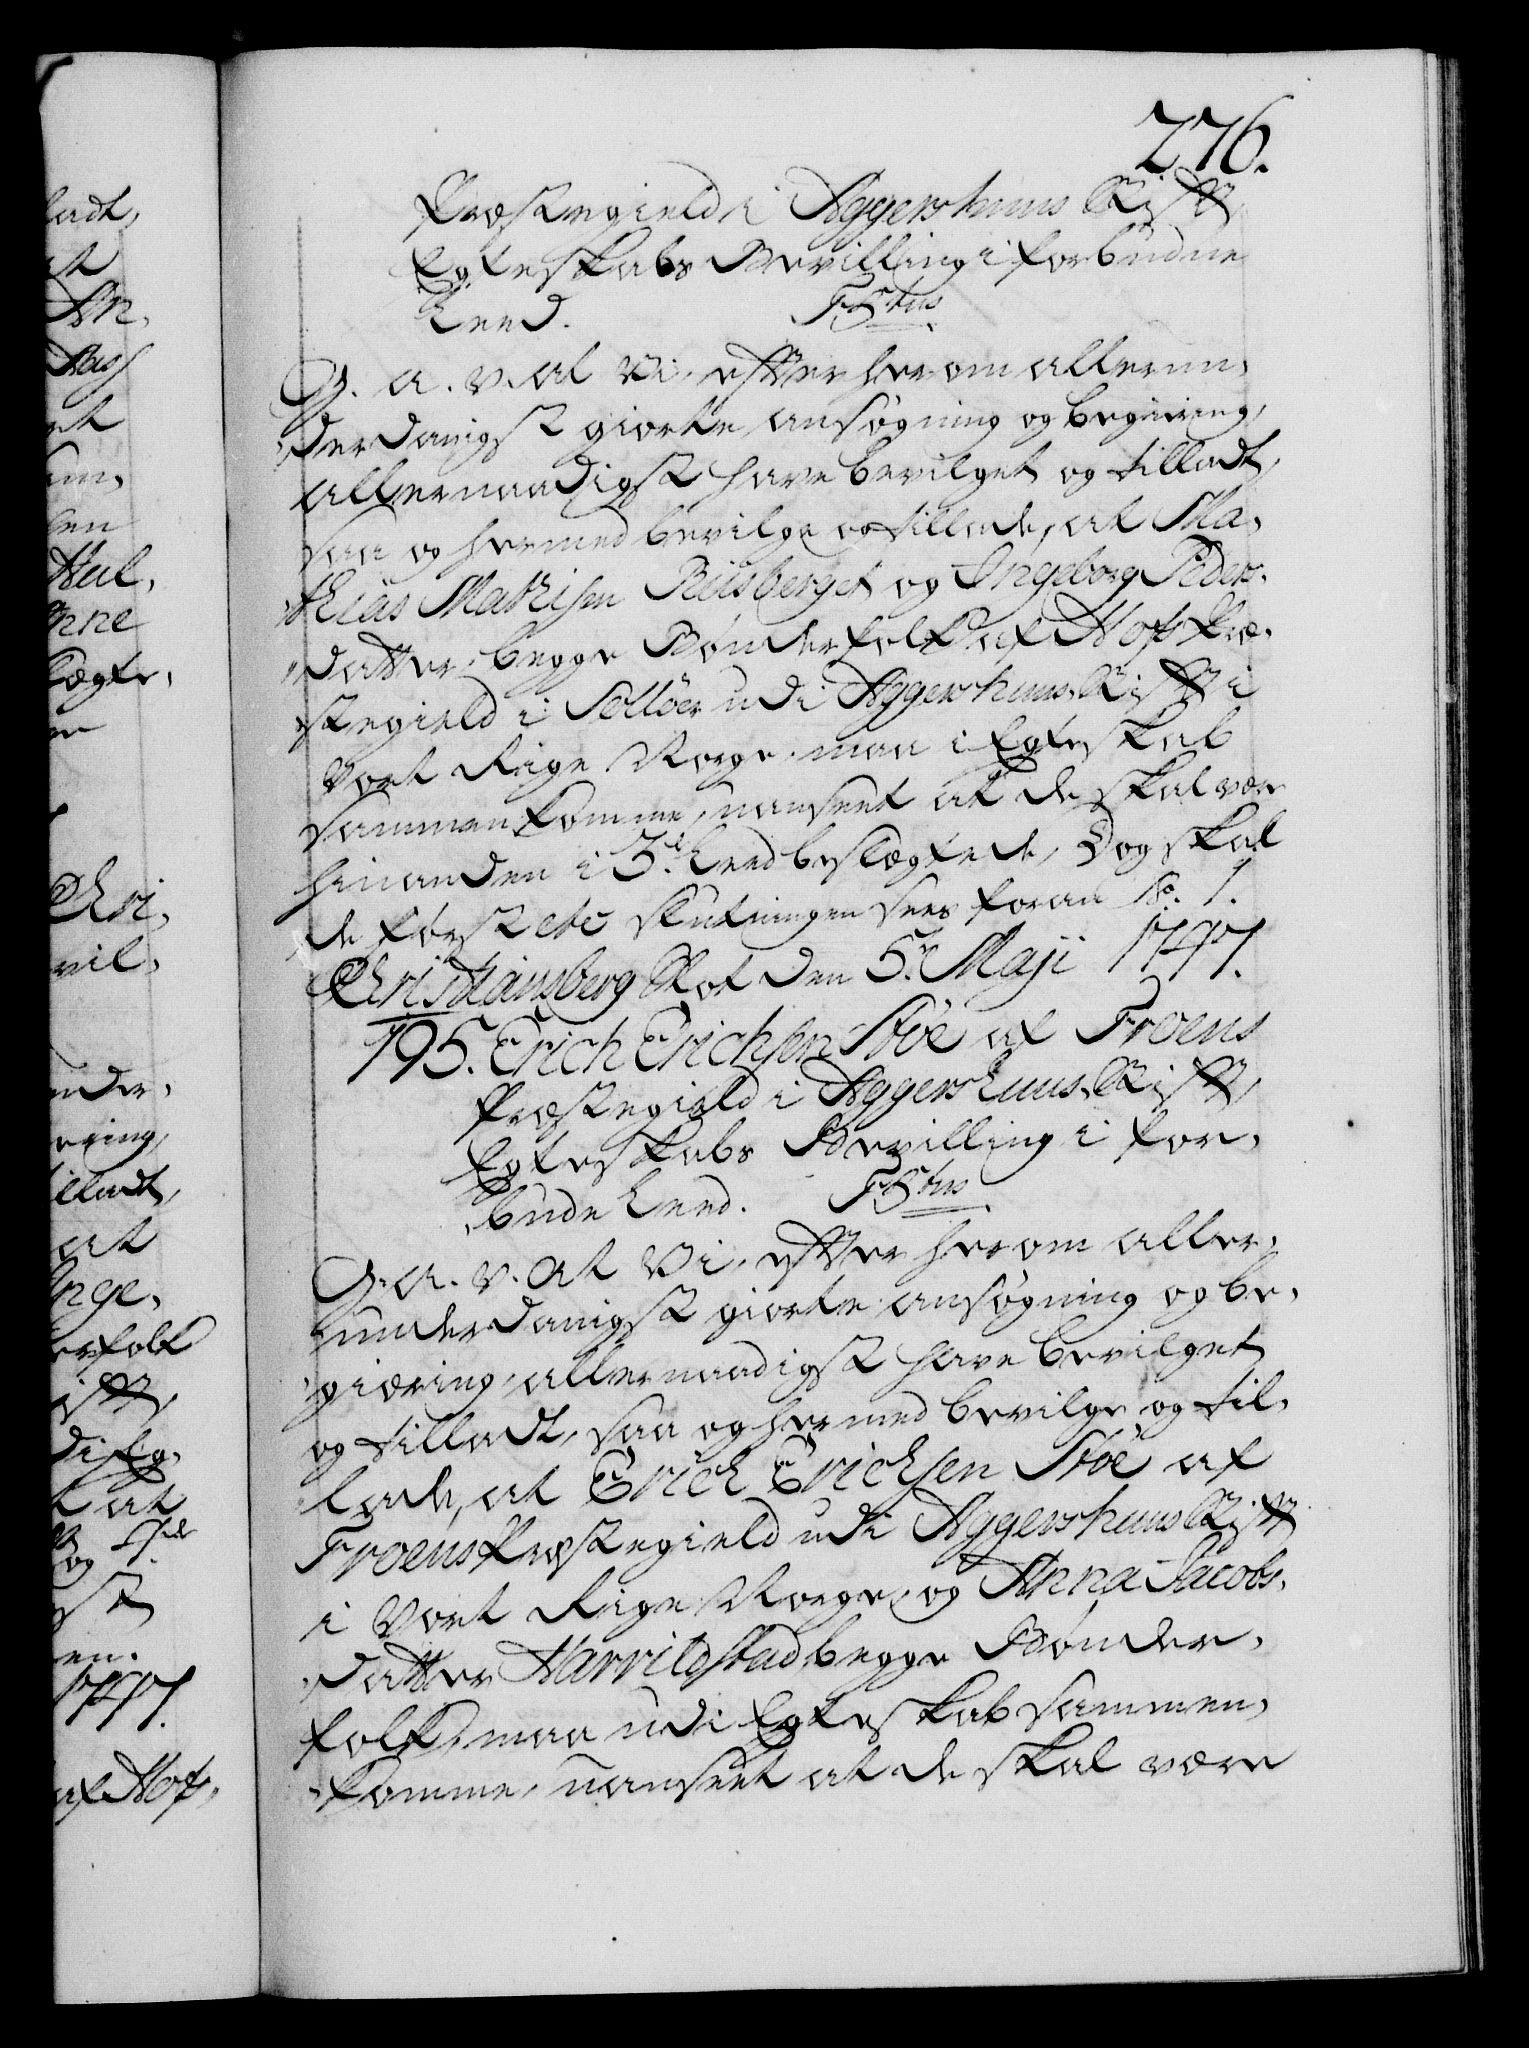 276.
Præstegield i Aggershuus Stifft,
Egteskabs Bevilling i forbudne
Leed. F5tus
G. a. v. at Vi, efter herom allerun-
derdanigst giorte ansøgning og begiering,
allernaadigst have bevilget og tilladt,
saa og hermed bevilge og tillade, at Ma-
thias Mathisen Riisberget og Ingeborg Peders-
datter, begge Bønderfolk af Hofs Præ-
stegield i Solløer udi Aggershuus Stifft i
Vort Rige Norge, maa i Egteskab
sammenkomme, uanseet at de skal være
hinanden i 3.de Leed beslægtede, Dog skal
de først etc slutningen sees foran No. 1.
Christiansberg Slot den 5.te Maji 1747.
195. Erich Erichsen Stöe af Froens
Præstegield i Aggershuus Stifft,
Egteskabs Bevilling i for-
budne Leed. F5tus
G. a. v. at Vi, efter herom aller-
underdanigst giorte ansøgning og be-
giering, allernaadigst have bevilget
og tilladt, saa og hermed bevilge og til-
lade, at Erich Erichsen Stöe af
Froens Præstegield udi Aggershuus Stifft
i Vort Rige Norge, og Anna Jacobs-
datter Harrildstad begge Bønder-
folk, maa udi Egteskab sammen-
komme, uanseet at de skal være